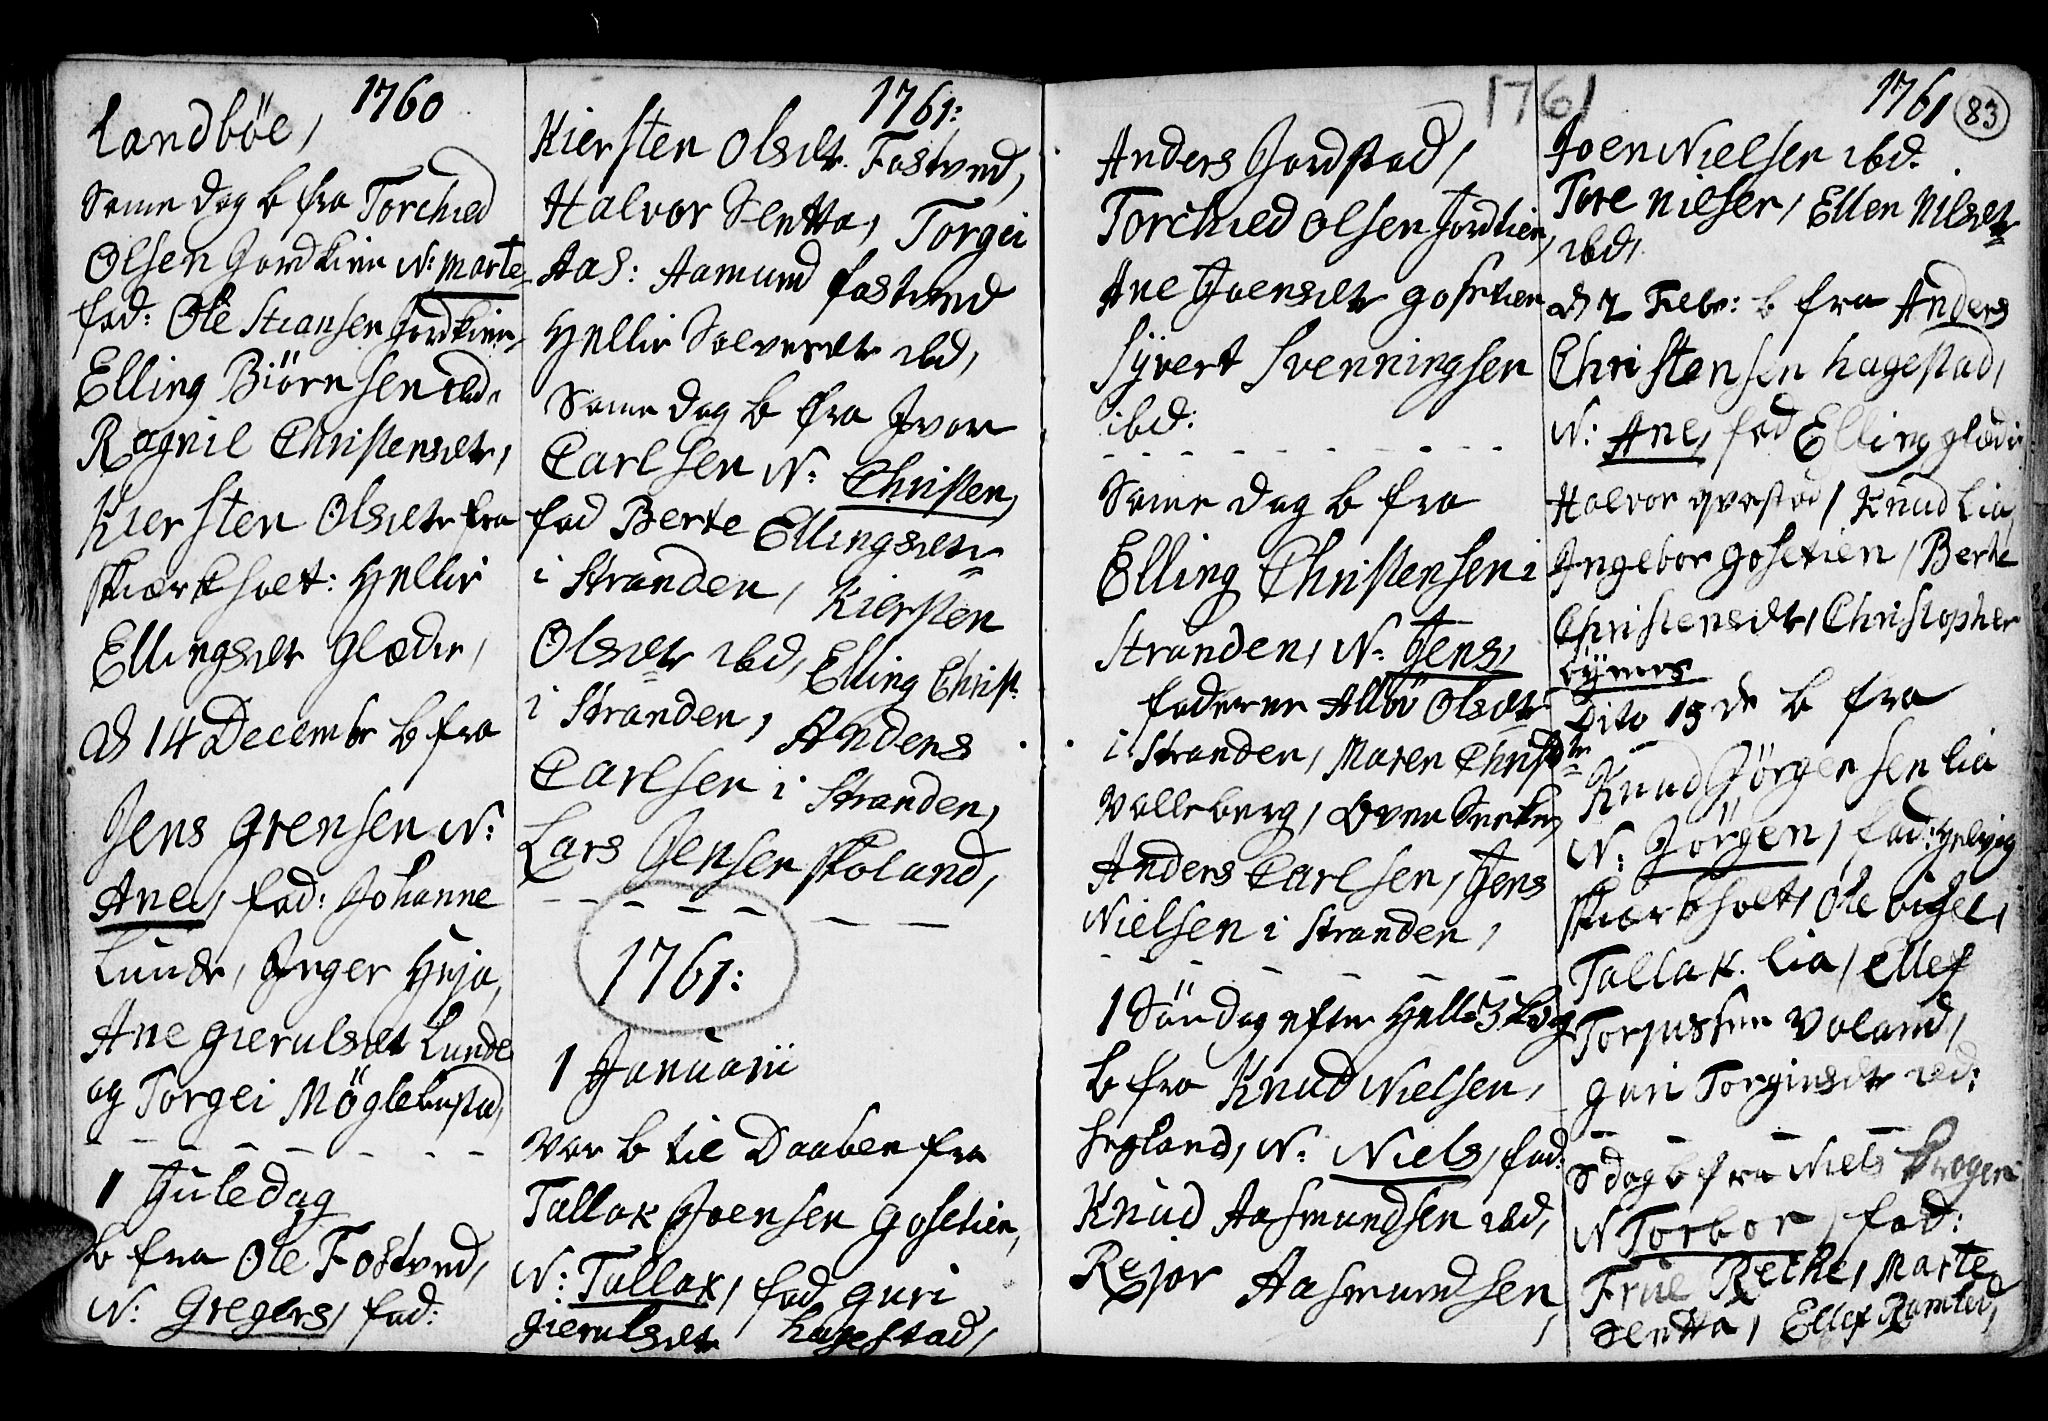 1760
Landböe,
Same dag b fra Torchied
Olsen Jordkien N: Marte
fad: Ole Stiansen Jordkien,
Elling Biörnsen ibd,
Ragnil Christensdtr,
Kiersten Olsdtr fra
Skiærkholt: Hellie
Ellingsdtr Glædie,
d 14 Decembr b fra
Jens Grensen N:
Ane, fad: Johanne
Lunde, Inger Heja,
Ane Gierulsdt Lunde
og Torgei Möglebustad,
1 Juledag
b fra Ole Fostved,
N: Gregers, fad:
1761:
Kiersten Olsdtr. Fostved,
Halvor Sletta, Torgei
Aas: Aamund Fostved
Hellie Solvesdtr ibd,
Same dag b fra Iver
Carlsen N: Christen,
fad Berte Ellingsdtr
i Stranden, Kiersten
Olsdtr ibd, Elling Christ.
i Stranden, Anders
Carlsen i Stranden,
Lars Jensen Skoland,
1761:
1 Januarii
var b til Daaben fra
Tallak Joensen Gosetien,
N: Tallak, fad Guri
Gierulsdt Hagestad,
1761
Anders Jordstad,
Torchied Olsen Jordkien,
Ane Joensdtr Gosetien
Syvert Svenningsen
ibd:
Same dag b fra
Elling Christensen i
Stranden, N: Jens,
faderne Allbör Olsdtr
i Stranden, Maren Christdtr
Valleberg,
Anders Carlsen, Jens
Nielsen i Stranden,
1 Söndag efter Hell: 3 Kong
b fra Knud Nielsen,
Segland, N: Niels, fad:
Knud Aasmundsen ibd,
Rejor Aasmundsen,
1761
83
Joen Nielsen ibd.
Tore Nielsen, Ellen Nilsdtr
ibd,
d 2 Febr: b fra Anders
Christensen Hagestad,
N: Ane, fad Elling Glædie
Halvor Qvestad, Knud Lia
Ingebor Gosetien, Berte
Christensdtr, Christopher
Dito 15de b fra
Knud Jörgensen Lia
N: Jörgen, fad: Helvig
Skiærkholt, Ole
Tallak Lia, Ellef
Torjussen Voland,
Guri Torgiusdtr ibd:
S dag b fra Niels
N Torbor, fad:
Frue Bethe, Marte
Sletta, Ellef